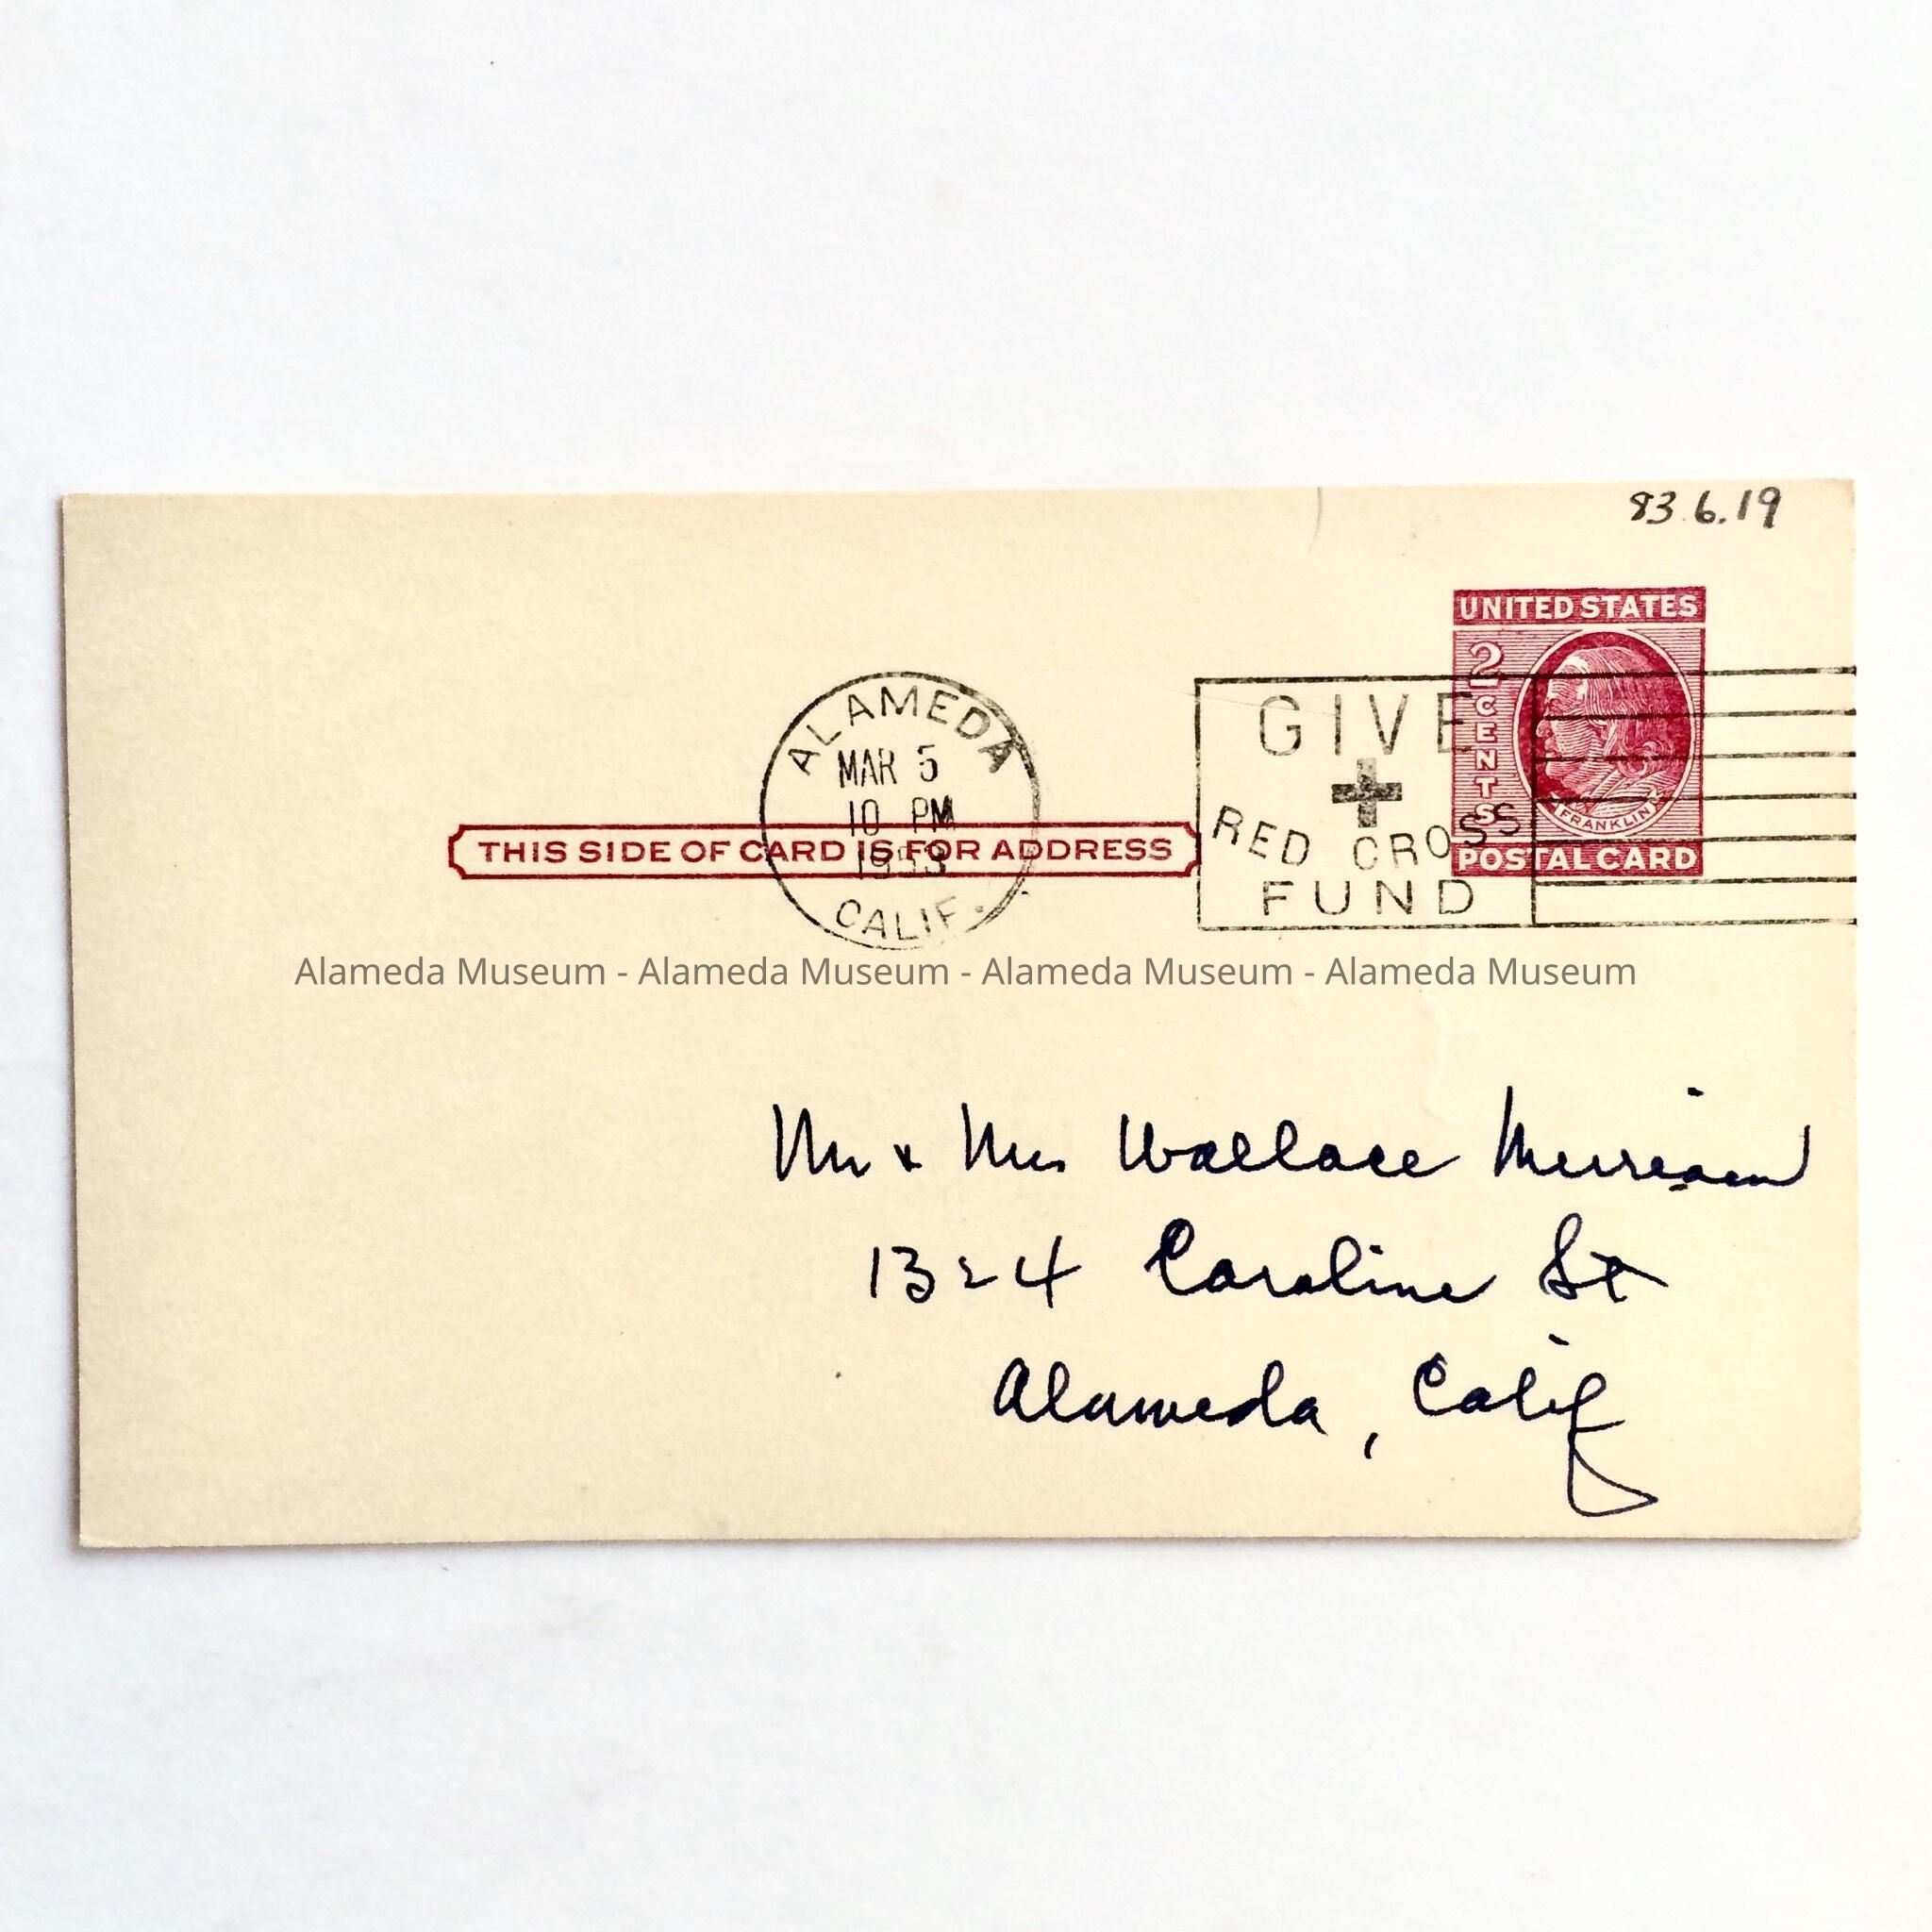 83.6.19
UNITED STATES
2 CENTS
FRANKLIN
POSTAL CARD
ALAMEDA
MAR 5
10 PM
1953
CALIF.
GIVE
RED CROSS
FUND
THIS SIDE OF CARD IS FOR ADDRESS
Alameda Museum - Alameda Museum - Alameda Museum - Alameda Museum
Mr & Mrs Wallace Merriam
1324 Caroline St
Alameda, Calif